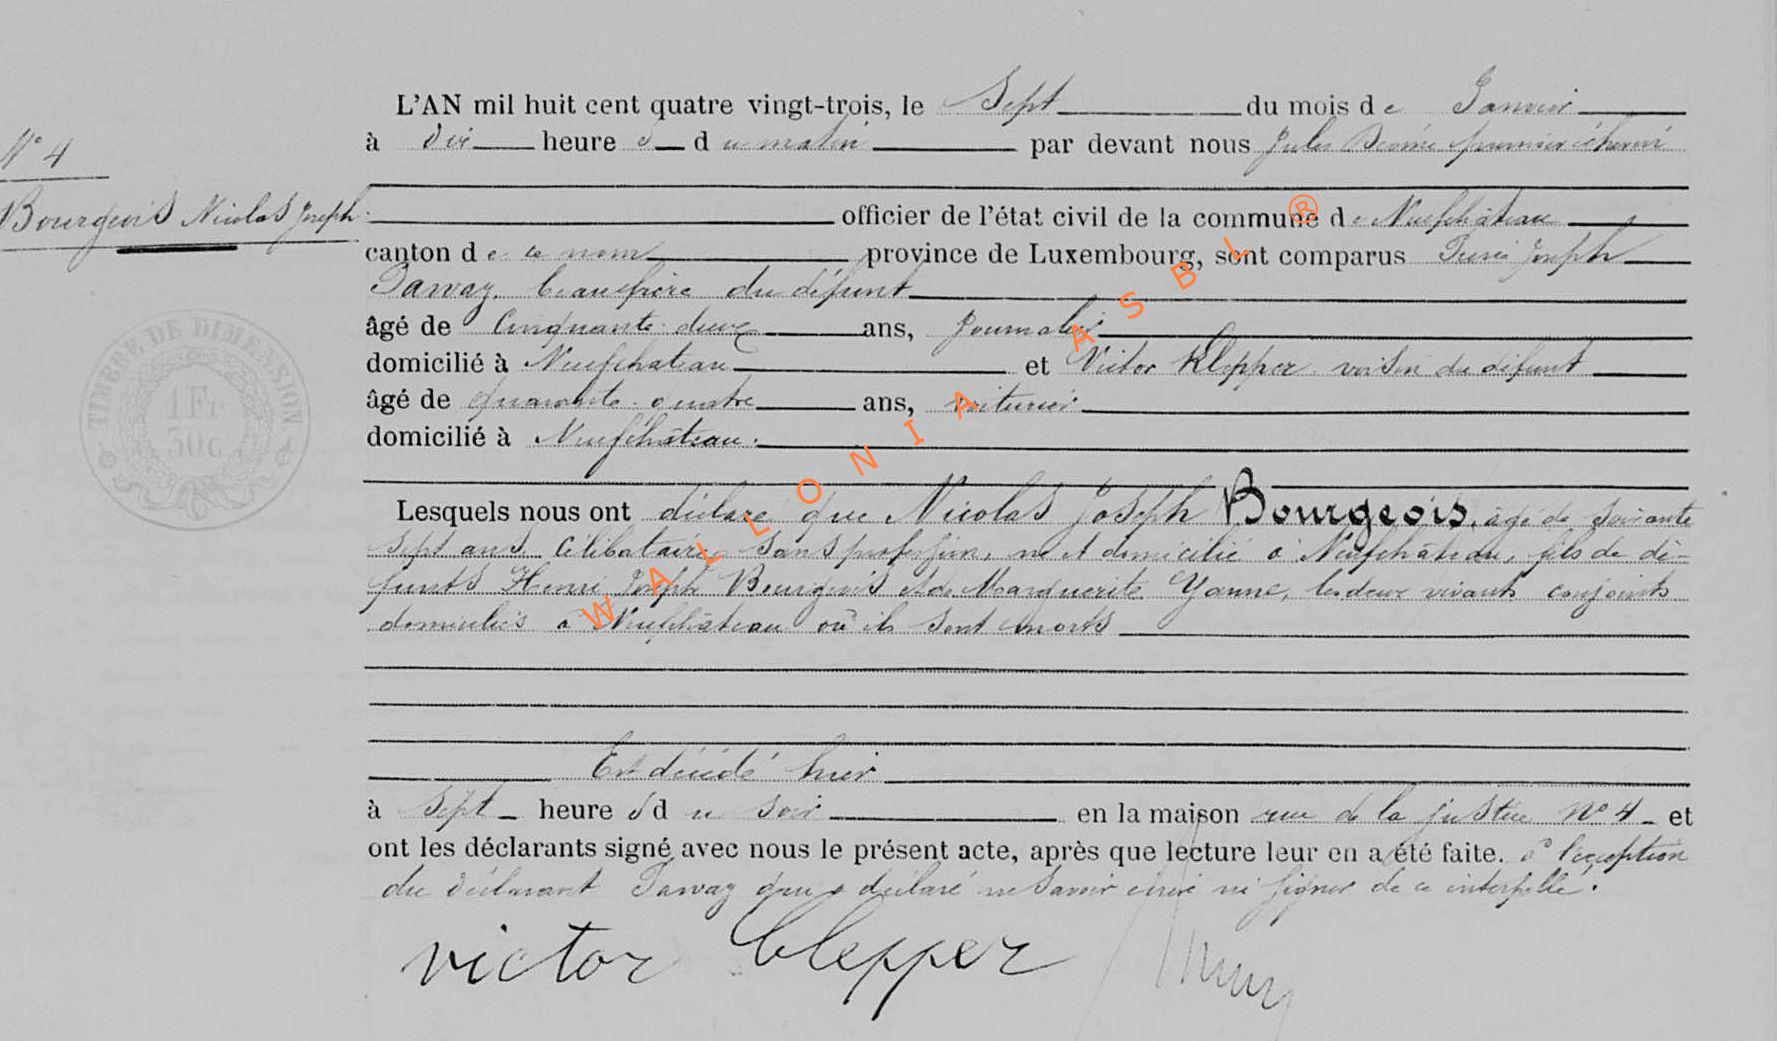 L'AN mil huit cent quatre vingt-trois, le Sept du mois de Janvier
N° 4
à dix heures du matin par devant nous Jules premier échevin
Bourgeois Nicolas Joseph.
officier de l'état civil de la commune de Neufchâteau
canton de ce nom province de Luxembourg, sont comparus Joseph
Tawaz, beaufrère du défunt
âgé de Cinquante-deux ans, Journalier
domicilié à Neufchateau et Victor Klepper voisin du défunt
âgé de quarante-quatre ans, voiturier
domicilié à Neufchâteau.
TIMBRE DE DIMENSION
1 Fr
50c
Lesquels nous ont déclaré que Nicolas Joseph Bourgeois, âgé de soixante
sept ans, Célibataire, sans profession, né et domicilié à Neufchâteau, fils de dé-
funts Henri Joseph Bourgeois et de Marguerite Yanne, les deux vivants conjoints
domiciliés à Neufchâteau où ils sont morts
Est décédé hier
à sept heures du soir en la maison rue de la justice N° 4 et
ont les déclarants signé avec nous le présent acte, après que lecture leur en a été faite. à l'exception
du déclarant Tawaz qui a déclaré ne savoir écrire ni signer de ce interpellé.
victor Clepper
WALLONIA ASBL ®